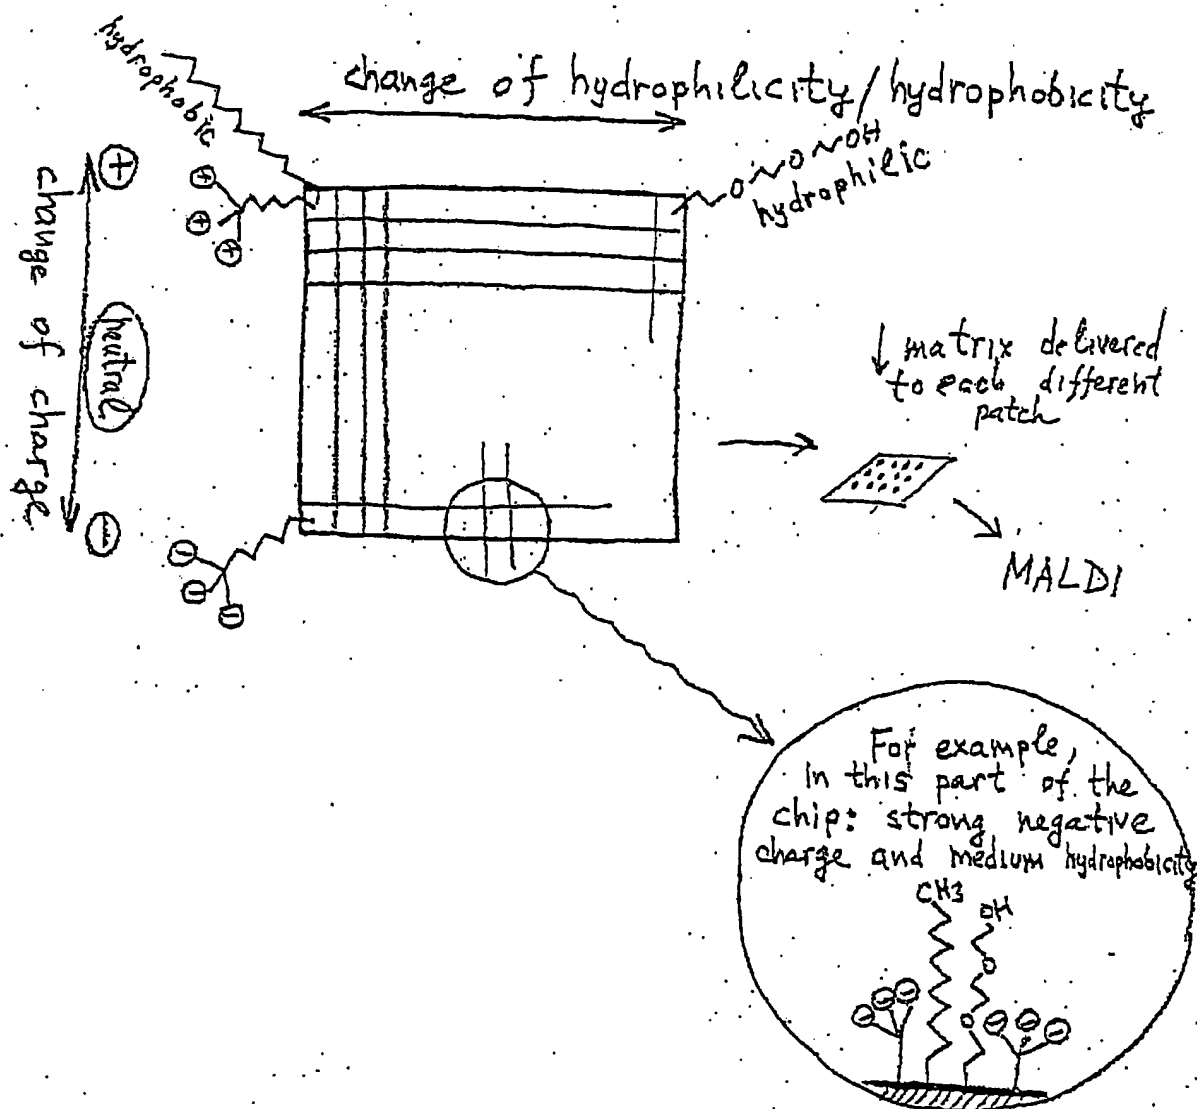 hydrophobic
change of hydrophilicity/hydrophobicity
OH
O
O
hydrophilic
+
+
+
+
change of charge
neutral
−
−
−
−
↓ matrix delivered
to each different
patch
MALDI
For example,
in this part of the
chip: strong negative
charge and medium hydrophobicity
CH3
OH
O
O
− − −
− − −